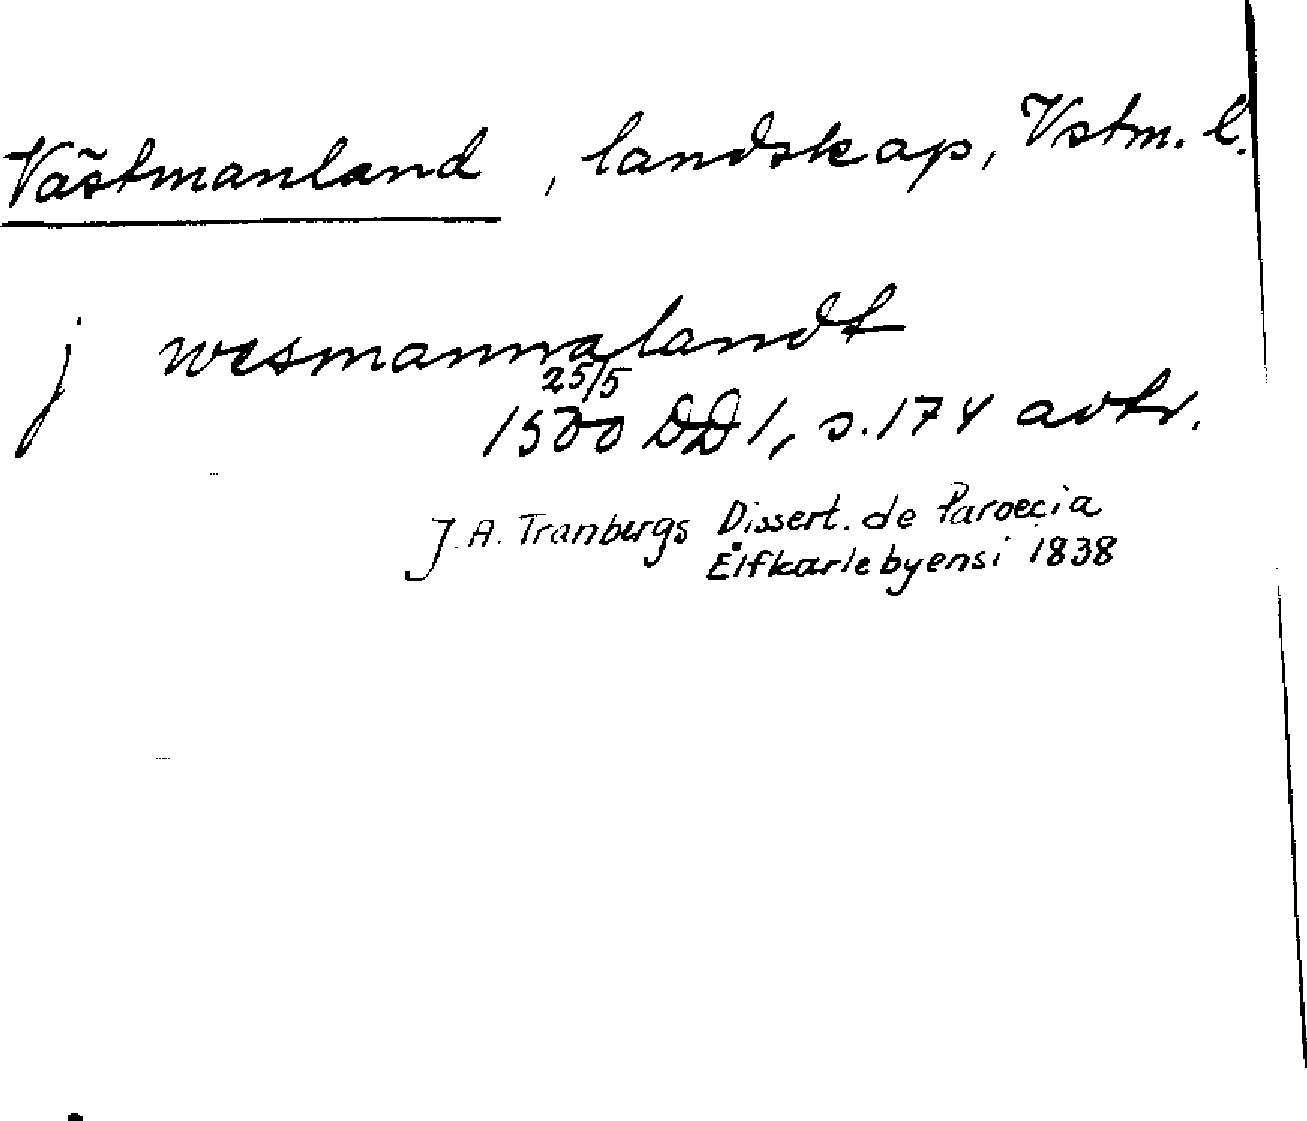 Västmanland, landskap, Vstm. l.
j wesmannalandt
25/5
1500 DD 1, s. 174 avtr.
J. A. Tranbergs Dissert. de Paroecia
Elfkarlebyensi 1838